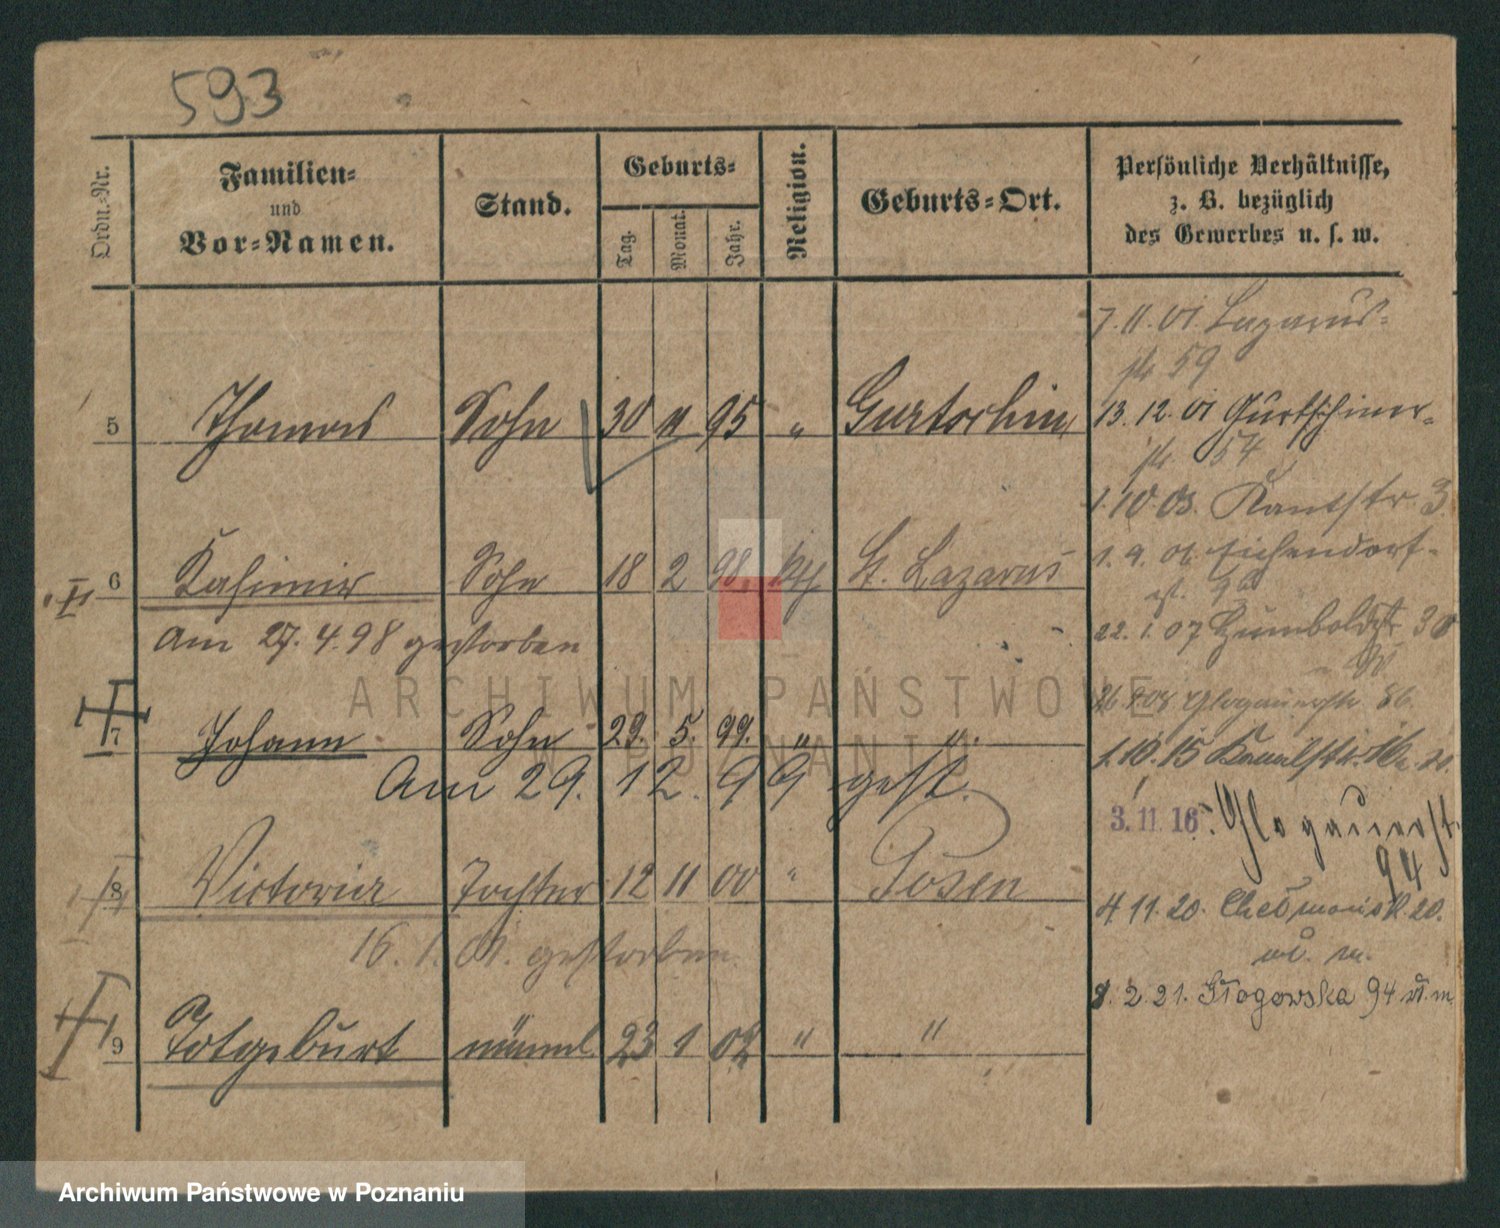 593
Ordn.-Nr.
Familien-
und
Vor-Namen.
Stand.
Geburts-
Tag.
Monat.
Jahr.
Religion.
Geburts-Ort.
Persönliche Verhältnisse,
z. B. bezüglich
des Gewerbes u. s. w.
5 Thomas Sohn 30 11 95 " Gurtschin
6 Kasimir Sohn 18 2 98 kth St. Lazarus
Am 27. 4. 98 gestorben
7 Johann Sohn 29. 5. 99. " "
Am 29. 12. 99 gest.
8 Victoria Tochter 12 11 00 " Posen
16. 1. 01. gestorben.
9 Totgeburt männl. 23 1 02 " "
7. 11. 01. Lazarus-
str 59
13. 12. 01 Gurtschiner-
str. 54
1. 10. 03. Kantstr. 3
Eichendorf-
22. 1. 07 Humboldtstr 30
Glogauerstr
1. 10. 15 Kanalstr.
3. 11. 16. Glogauerst.
94
4 11. 20. 20.
w. m.
8. 2. 21. Głogowska 94 w. m.
ARCHIWUM PAŃSTWOWE
W POZNANIU
Archiwum Państwowe w Poznaniu